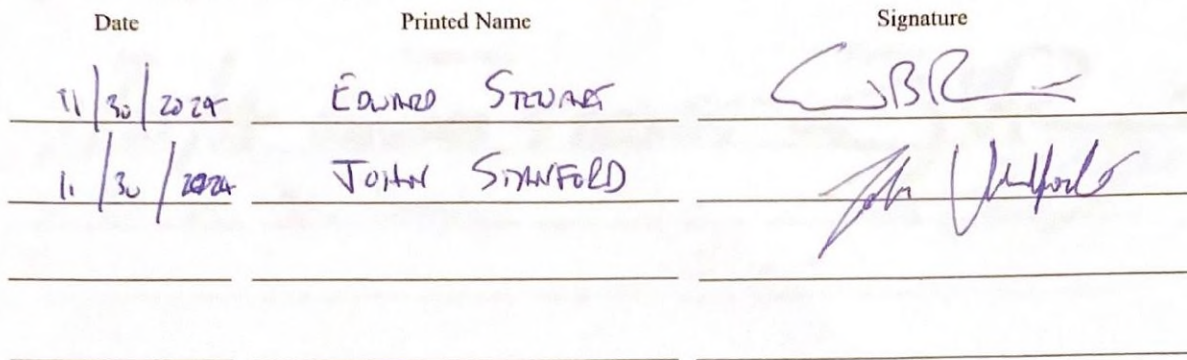 Date Printed Name Signature
11/30/2024 EDWARD STEWART
11/30/2024 JOHN STANFORD John